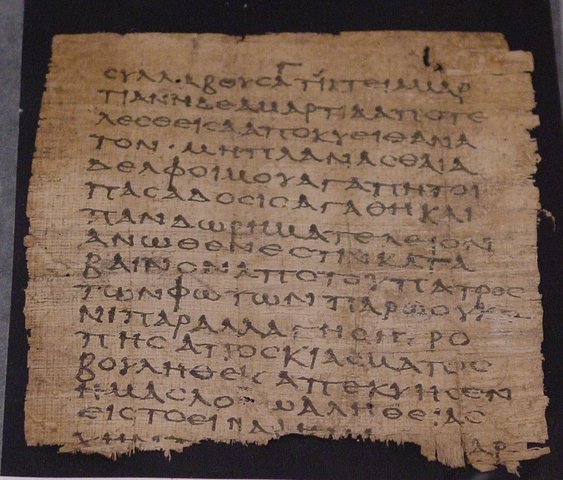 ϹΥΛΛΑΒΟΥϹΑΤΙΚΤΕΙΑΜΑΡ
ΤΙΑΝΗΔΕΑΜΑΡΤΙΑΑΠΟΤΕ
ΛΕϹΘΕΙϹΑΑΠΟΚΥΕΙΘΑΝΑ
ΤΟΝ · ΜΗΠΛΑΝΑϹΘΑΙΑ
ΔΕΛΦΟΙΜΟΥΑΓΑΠΗΤΟΙ
ΠΑϹΑΔΟϹΙϹΑΓΑΘΗΚΑΙ
ΠΑΝΔΩΡΗΜΑΤΕΛΕΙΟΝ
ΑΝΩΘΕΝΕϹΤΙΝΚΑΤΑ
ΒΑΙΝΟΝΑΠΟΤΟΥΠΑΤΡΟϹ
ΤΩΝΦΩΤΩΝΠΑΡΩΟΥΚΕ
ΝΙΠΑΡΑΛΛΑΓΗΗΤΡΟ
ΠΗϹΑΠΟϹΚΙΑϹΜΑΤΟϹ
ΒΟΥΛΗΘΕΙϹΑΠΕΚΥΗϹΕΝ
ΗΜΑϹΛΟΓΩΑΛΗΘΕΙΑϹ
ΕΙϹΤΟΕΙΝΑΙ